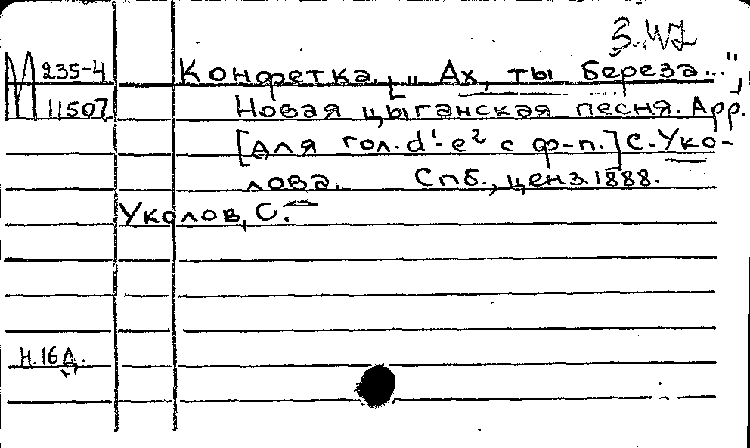 М 235-4 Конфетка. „Ах, ты береза...",
11507 Новая цыганская песня. Арр.
[для гол. d¹-e² с ф-п.] С. Уко-
лова. Спб., ценз. 1888.
Уколов, С.
Н.16д.